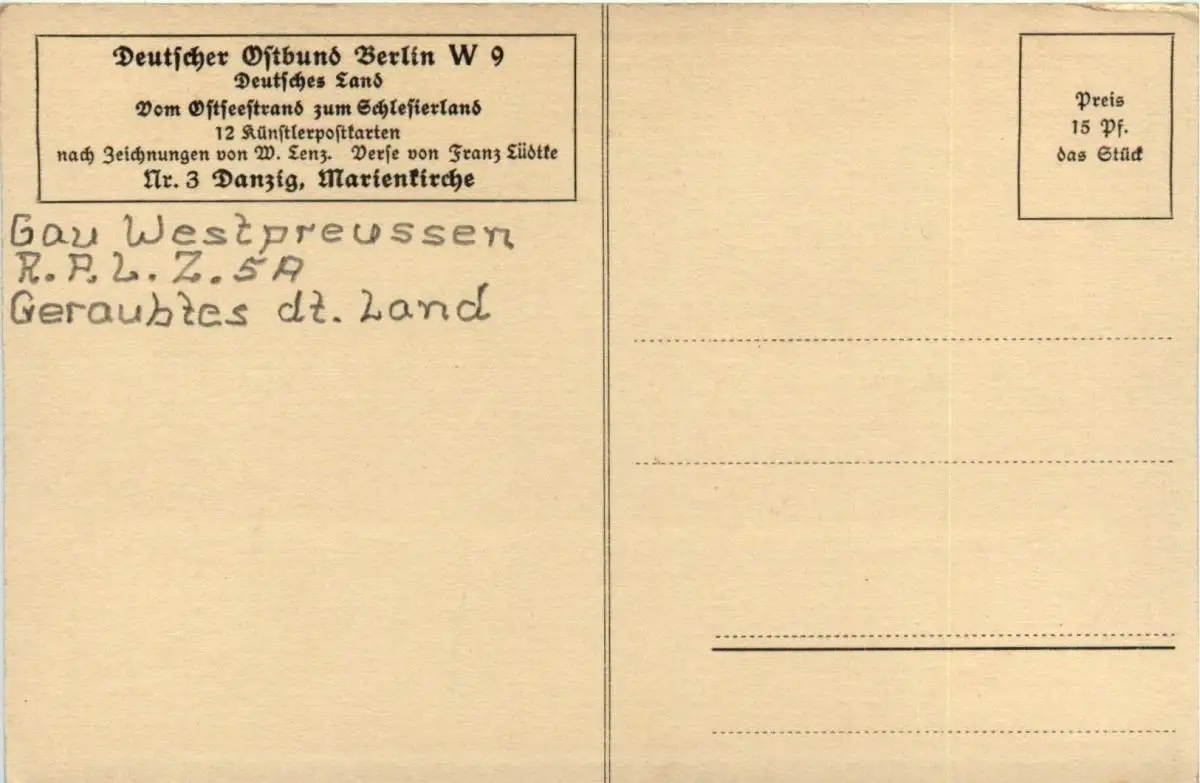 Deutscher Ostbund Berlin W 9
Deutsches Land
Vom Ostseestrand zum Schlesierland
12 Künstlerpostkarten
nach Zeichnungen von W. Lenz. Verse von Franz Lüdtke
Nr. 3 Danzig, Marienkirche
Gau Westpreussen
R.P.L.Z.5A
Geraubtes dt. Land
Preis
15 Pf.
das Stück